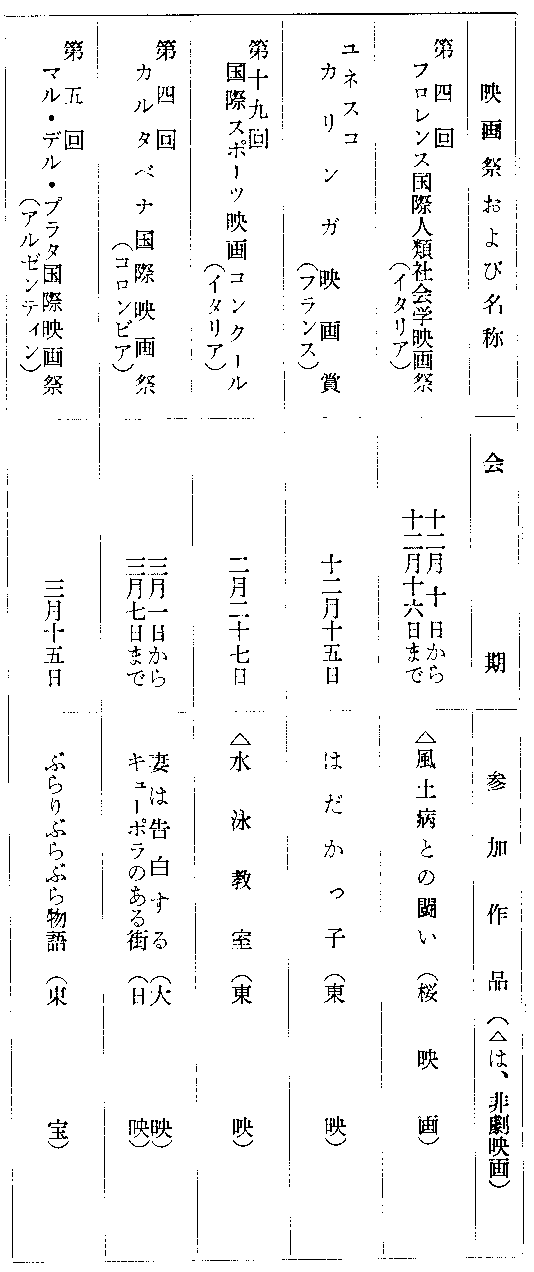 映画祭および名称
会期
参加作品（△は、非劇映画）
第四回
フロレンス国際人類社会学映画祭
（イタリア）
十二月十日から
十二月十六日まで
△風土病との闘い（桜映画）
ユネスコ
カリンガ映画賞
（フランス）
十二月十五日
はだかっ子（東映）
第十九回
国際スポーツ映画コンクール
（イタリア）
二月二十七日
△水泳教室（東映）
第四回
カルタベナ国際映画祭
（コロンビア）
三月一日から
三月七日まで
妻は告白する（大映）
キューポラのある街（日映）
第五回
マル・デル・プラタ国際映画祭
（アルゼンティン）
三月十五日
ぶらりぶらぶら物語（東宝）